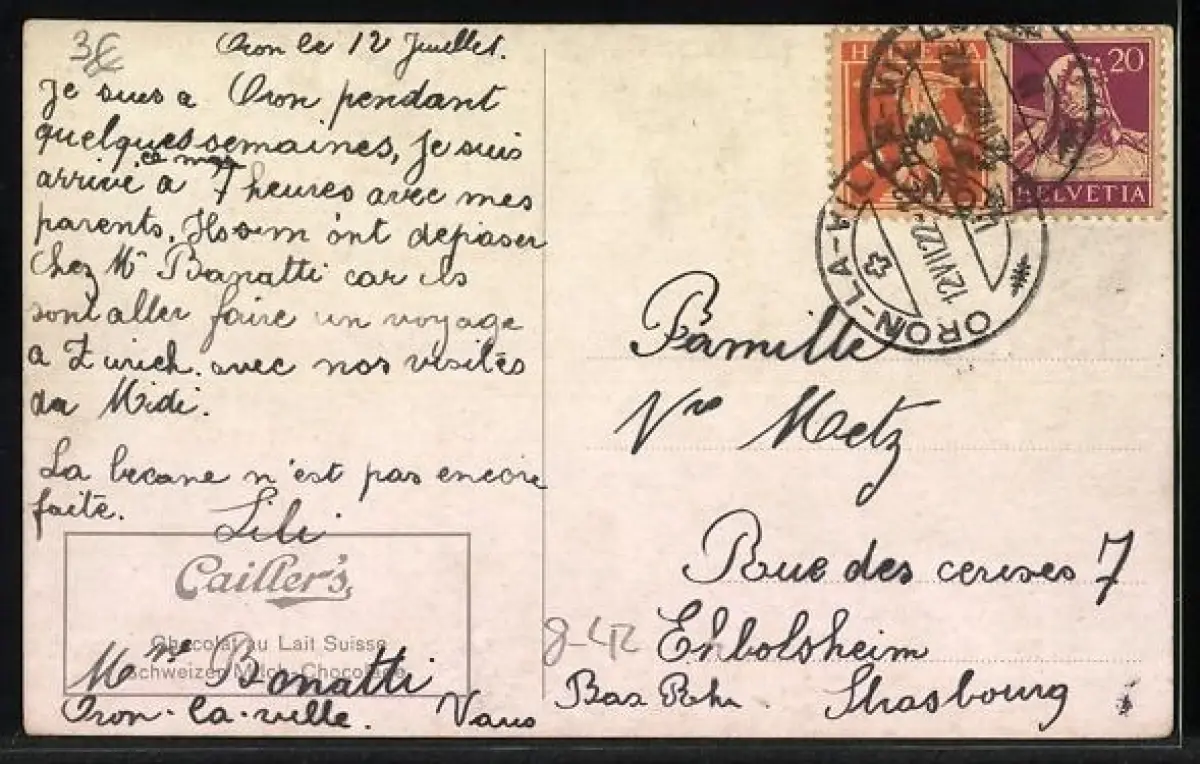 Oron le 12 Juillet.
Je suis a Oron pendant
quelques semaines, je suis
ce mat
arrivé à 7 heures avec mes
parents. Ils m'ont depaser
chez Mr Bonatti car ils
sont aller faire un voyage
a Zurich. avec nos visites
du Midi.
La becane n'est pas encore
faite.
Lili
Cailler's
Chocolat au Lait Suisse
Schweizer Milch-Chocolade
Mme Bonatti
Oron-la-ville. Vaus
HELVETIA
20
HELVETIA
ORON-LA-VILLE
12 VII 22
Famille
Vve Metz
Rue des cerises 7
Ekbolsheim
Bas Rhn Strasbourg